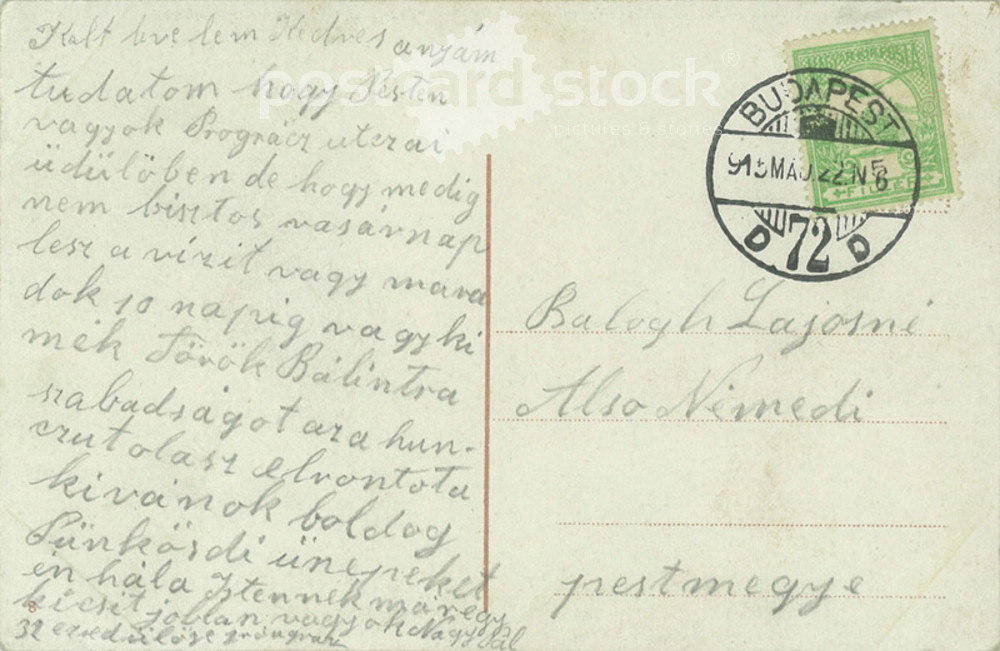 Kelt levelem Kedves anyám
tudatom hogy Pesten
vagyok Prográcz utczai
üdülőben de hogy medig
nem bisztos vasárnap
lesz a vizit vagy mara
dok 10 napig vagy ki
mék Török Bálintra
szabadságot az a hun-
czut olasz elrontota
kivánok boldog
Pünkösdi ünepeket
én hála Istennek már egy
kicsit jobban vagyok Nagy Pál
32 ezred
postcard stock
pictures & stories
BUDAPEST
915 MAJ 22. N
D 72 D
MAGYAR KIR. POSTA
FILLÉR
Balogh Lajosné
Also Némedi
pestmegye
8